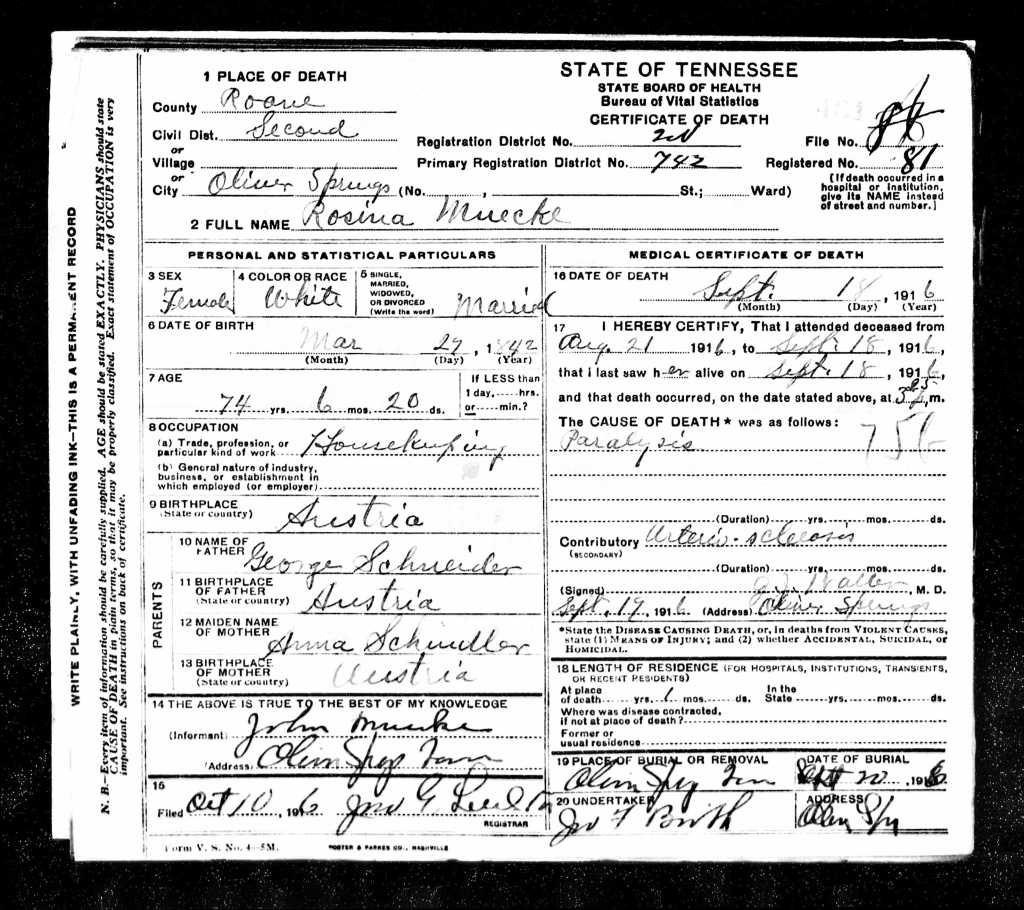 WRITE PLAINLY, WITH UNFADING INK—THIS IS A PERMANENT RECORD
N. B.—Every item of information should be carefully supplied. AGE should be stated EXACTLY. PHYSICIANS should state
CAUSE OF DEATH in plain terms, so that it may be properly classified. Exact statement of OCCUPATION is very
important. See instructions on back of certificate.
1 PLACE OF DEATH
County Roane
Civil Dist. Second
or
Village
or
City Oliver Springs (No. , St.; Ward)
2 FULL NAME Rosina Muecke
STATE OF TENNESSEE
STATE BOARD OF HEALTH
Bureau of Vital Statistics
CERTIFICATE OF DEATH
Registration District No. 2d
File No.
Primary Registration District No. 742
Registered No. 81
[If death occurred in a
hospital or institution,
give its NAME instead
of street and number.]
PERSONAL AND STATISTICAL PARTICULARS
3 SEX
Female
4 COLOR OR RACE
White
5 SINGLE,
MARRIED,
WIDOWED,
OR DIVORCED
(Write the word)
Married
6 DATE OF BIRTH
Mar 27, 1842
(Month) (Day) (Year)
7 AGE
74 yrs. 6 mos. 20 ds.
If LESS than
1 day, hrs.
or min.?
8 OCCUPATION
(a) Trade, profession, or
particular kind of work Housekeeping
(b) General nature of industry,
business, or establishment in
which employed (or employer)
9 BIRTHPLACE
(State or country) Austria
PARENTS
10 NAME OF
FATHER George Schneider
11 BIRTHPLACE
OF FATHER
(State or country) Austria
12 MAIDEN NAME
OF MOTHER Anna Schindler
13 BIRTHPLACE
OF MOTHER
(State or country) Austria
14 THE ABOVE IS TRUE TO THE BEST OF MY KNOWLEDGE
(Informant) John Muecke
(Address) Oliver Spgs Tenn
15
Filed Oct 10, 1916 Jno G
REGISTRAR
Form V. S. No. 4—5M.
FOSTER & PARKES CO., NASHVILLE
MEDICAL CERTIFICATE OF DEATH
16 DATE OF DEATH
Sept. 18, 1916
(Month) (Day) (Year)
17 I HEREBY CERTIFY, That I attended deceased from
Aug. 21 1916, to Sept. 18, 1916,
that I last saw her alive on Sept. 18, 1916,
and that death occurred, on the date stated above, at m.
The CAUSE OF DEATH* was as follows:
Paralysis
(Duration) yrs. mos. ds.
Contributory Arterio-sclerosis
(SECONDARY)
(Duration) yrs. mos. ds.
(Signed) Walker, M. D.
Sept. 19, 1916 (Address) Oliver Springs
*State the DISEASE CAUSING DEATH, or, in deaths from VIOLENT CAUSES,
state (1) MEANS OF INJURY; and (2) whether ACCIDENTAL, SUICIDAL, or
HOMICIDAL.
18 LENGTH OF RESIDENCE (FOR HOSPITALS, INSTITUTIONS, TRANSIENTS,
OR RECENT RESIDENTS)
At place
of death yrs. 1 mos. ds.
In the
State yrs. mos. ds.
Where was disease contracted,
if not at place of death?
Former or
usual residence
19 PLACE OF BURIAL OR REMOVAL
Oliver Spg Tenn
DATE OF BURIAL
Sept 20 1916
20 UNDERTAKER
Jno F
ADDRESS
Oliver Spg